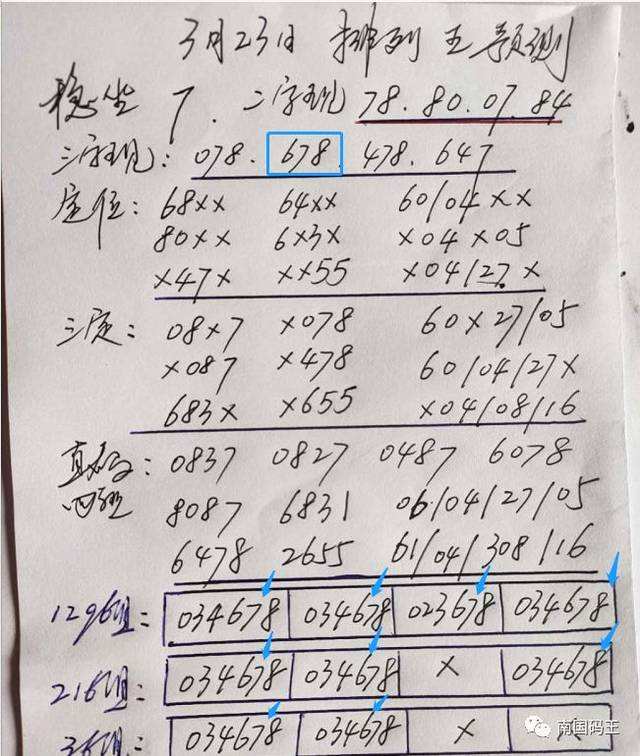 3月23日 排列五预测
稳坐 7. 二字现 78.80.07.84
三字现: 078. 678. 478. 647
定位: 68×× 64×× 60/04××
80×× 6×3× ×04×05
×47× ××55 ×04/27×
三定: 08×7 ×078 60×27/05
×087 ×478 60/04/27×
683× ×655 ×04/08/16
直码: 0837 0827 0487 6078
8087 6831 06/04/27/05
6478 2655 61/04/308/16
1296组: 034678 034678 023678 034678
216组: 034678 034678 × 034678
36组: 034678 034678 × ×
南国码王